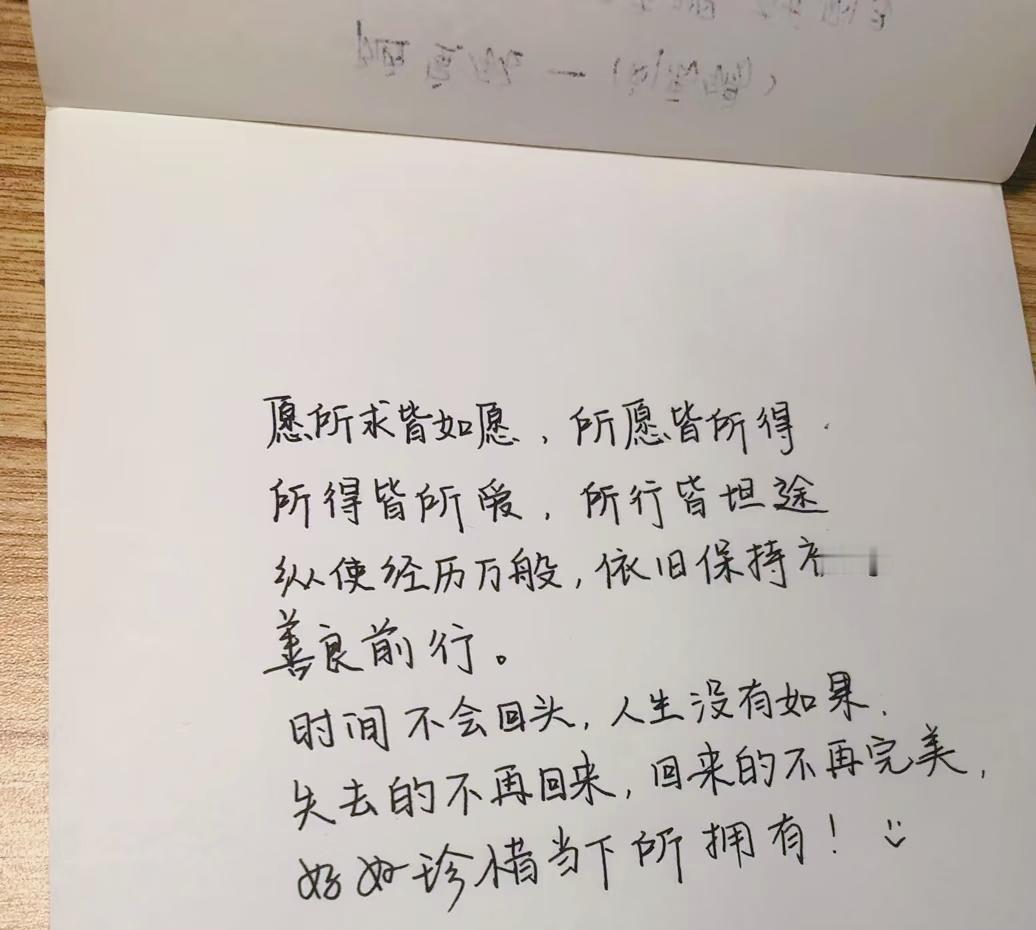 愿所求皆如愿，所愿皆所得.
所得皆所爱，所行皆坦途
纵使经历万般，依旧保持
善良前行。
时间不会回头，人生没有如果.
失去的不再回来，回来的不再完美，
好好珍惜当下所拥有！